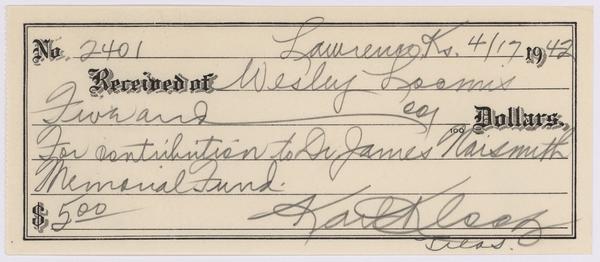 No. 2401 Lawrence, Ks. 4/17 1942
Received of Wesley Loomis
Five and 00/100 Dollars.
For contribution to Dr James Naismith
Memorial Fund.
$ 5.00 Karl Klooz
Treas.